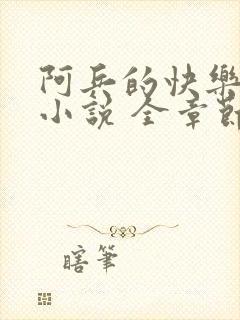 阿兵的快樂
小說 全章節
瞎筆